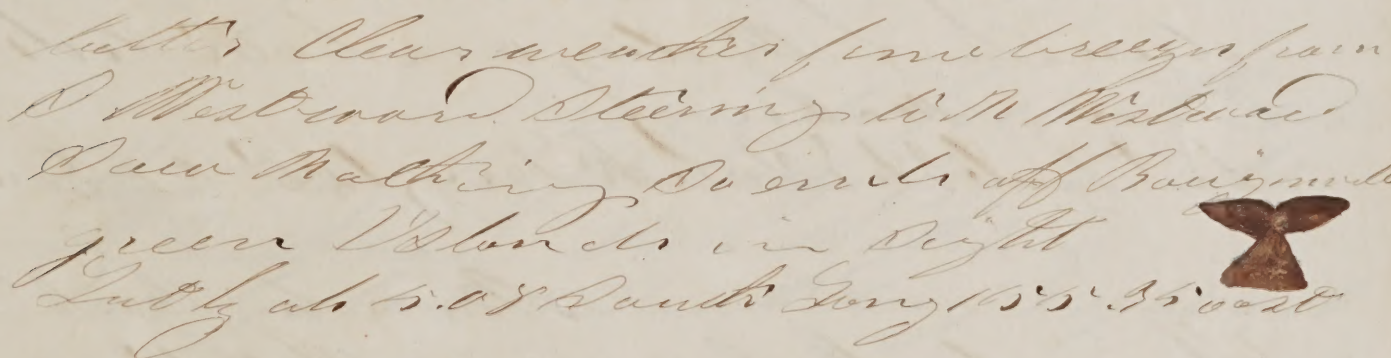 latter Clear weather fine breezes from
S Westward Steering to N Westward
Saw Nothing So ends off
green Islands in Sight
Lat by ob 4.08 South Long 155.35 east